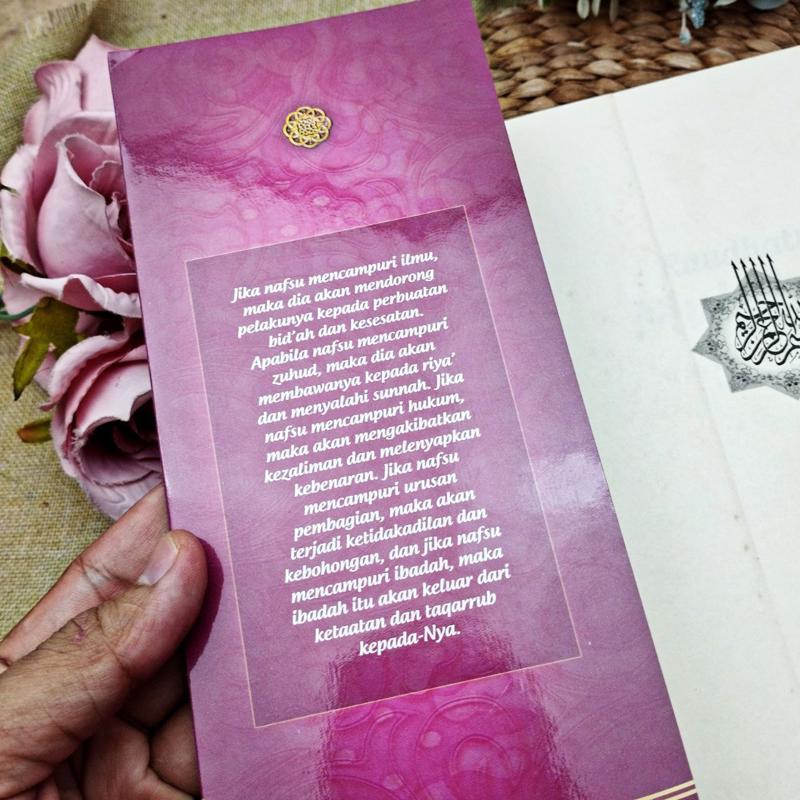 Jika nafsu mencampuri ilmu,
maka dia akan mendorong
pelakunya kepada perbuatan
bid'ah dan kesesatan.
Apabila nafsu mencampuri
zuhud, maka dia akan
membawanya kepada riya'
dan menyalahi sunnah. Jika
nafsu mencampuri hukum,
maka akan mengakibatkan
kezaliman dan melenyapkan
kebenaran. Jika nafsu
mencampuri urusan
pembagian, maka akan
terjadi ketidakadilan dan
kebohongan, dan jika nafsu
mencampuri ibadah, maka
ibadah itu akan keluar dari
ketaatan dan taqarrub
kepada-Nya.